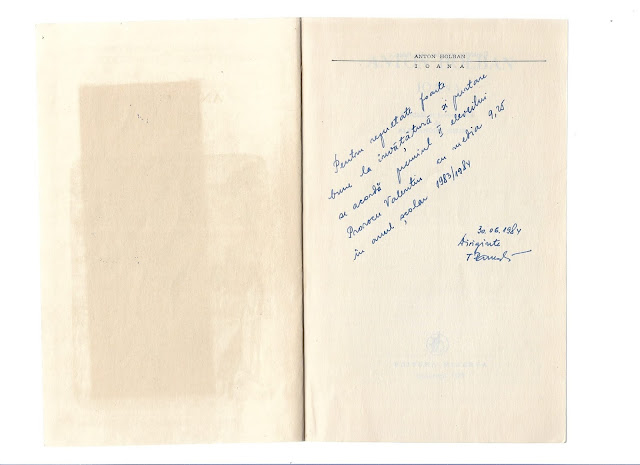 ANTON HOLBAN
IOANA
Pentru rezultate foarte
bune la învățătură și purtare
se acordă premiul I elevului
Prorocu Valentin cu media 9,25
în anul școlar 1983/1984
30.06.1984
Diriginte